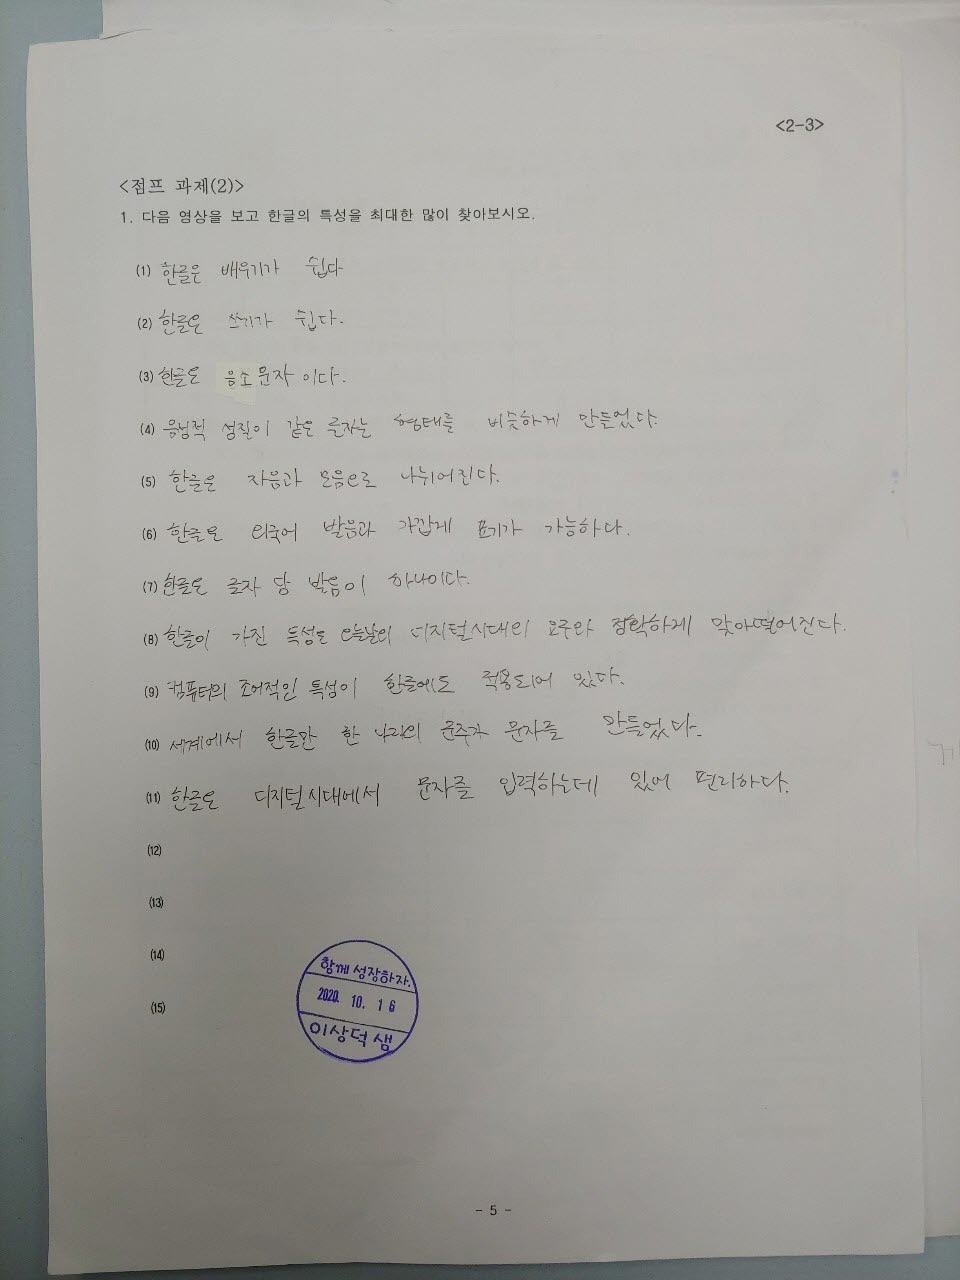 <2-3>
<점프 과제(2)>
1. 다음 영상을 보고 한글의 특성을 최대한 많이 찾아보시오.
(1) 한글은 배우기가 쉽다
(2) 한글은 쓰기가 쉽다.
(3) 한글은 음소문자이다.
(4) 음성적 성질이 같은 글자는 형태를 비슷하게 만들었다.
(5) 한글은 자음과 모음으로 나뉘어진다.
(6) 한글은 외국어 발음과 가깝게 표기가 가능하다.
(7) 한글은 글자 당 발음이 하나이다.
(8) 한글이 가진 특성은 오늘날의 디지털시대의 요구와 정확하게 맞아떨어진다.
(9) 컴퓨터의 조어적인 특성이 한글에도 적용되어 있다.
(10) 세계에서 한글만 한 나라의 군주가 문자를 만들었다.
(11) 한글은 디지털시대에서 문자를 입력하는데 있어 편리하다.
(12)
(13)
(14)
(15)
함께 성장하자.
2020. 10. 16
이상덕 샘
- 5 -